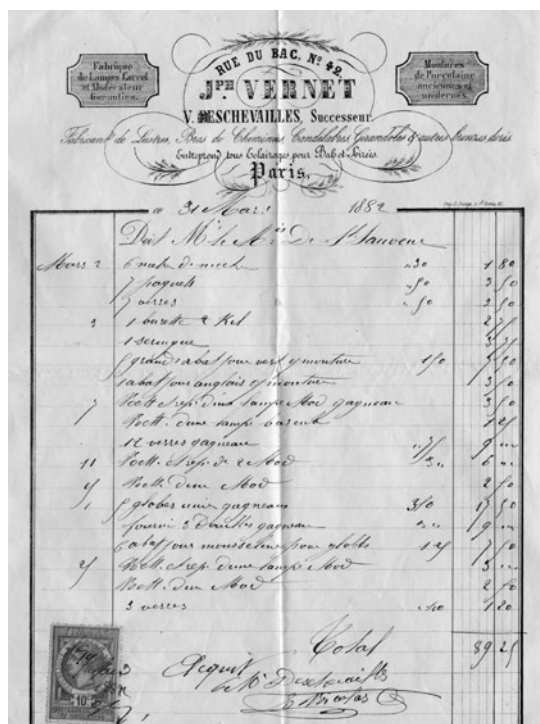 RUE DU BAC. Nº 42.
Fabrique
de Lampes Carcel
et Modérateur
Garanties.
JPH VERNET
Montures
de Porcelaine
anciennes et
modernes.
V. DESCHEVAILLES, Successeur.
Fabricant de Lustres, Bras de Cheminée, Candélabres, Girandoles & autres bronzes dorés
Entreprend tous Eclairages pour Bals et Soirées.
Paris,
31 Mars 1882
Doit Mr le Mis De St Sauveur
Mars 2 6 de mèche 30 1 80
7 paquets 50 3 50
7 verres 50 3 50
3 1 burette 2 Kil 2
1 seringue
5 grands abat jour vert et monture 1 50 7 50
1 abat jour anglais et monture 3 50
7 Nett. et rep. d'une lampe Mod gagneau 3 50
Nett. d'une lampe 1 25
12 verres gagneau 75 9
11 Nett. et rep. de 2 Mod 3 6
Nett. d'une Mod 2 50
5 globes unis gagneau 3 50 17 50
fourni 3 Douilles gagneau 3 9
6 abat jour mousseline pour globes 1 25 7 50
25 Nett. et rep. d'une lampe Mod 3
Nett. d'un Mod 2 50
3 verres 40 1 20
Total 89 25
Acquit
10